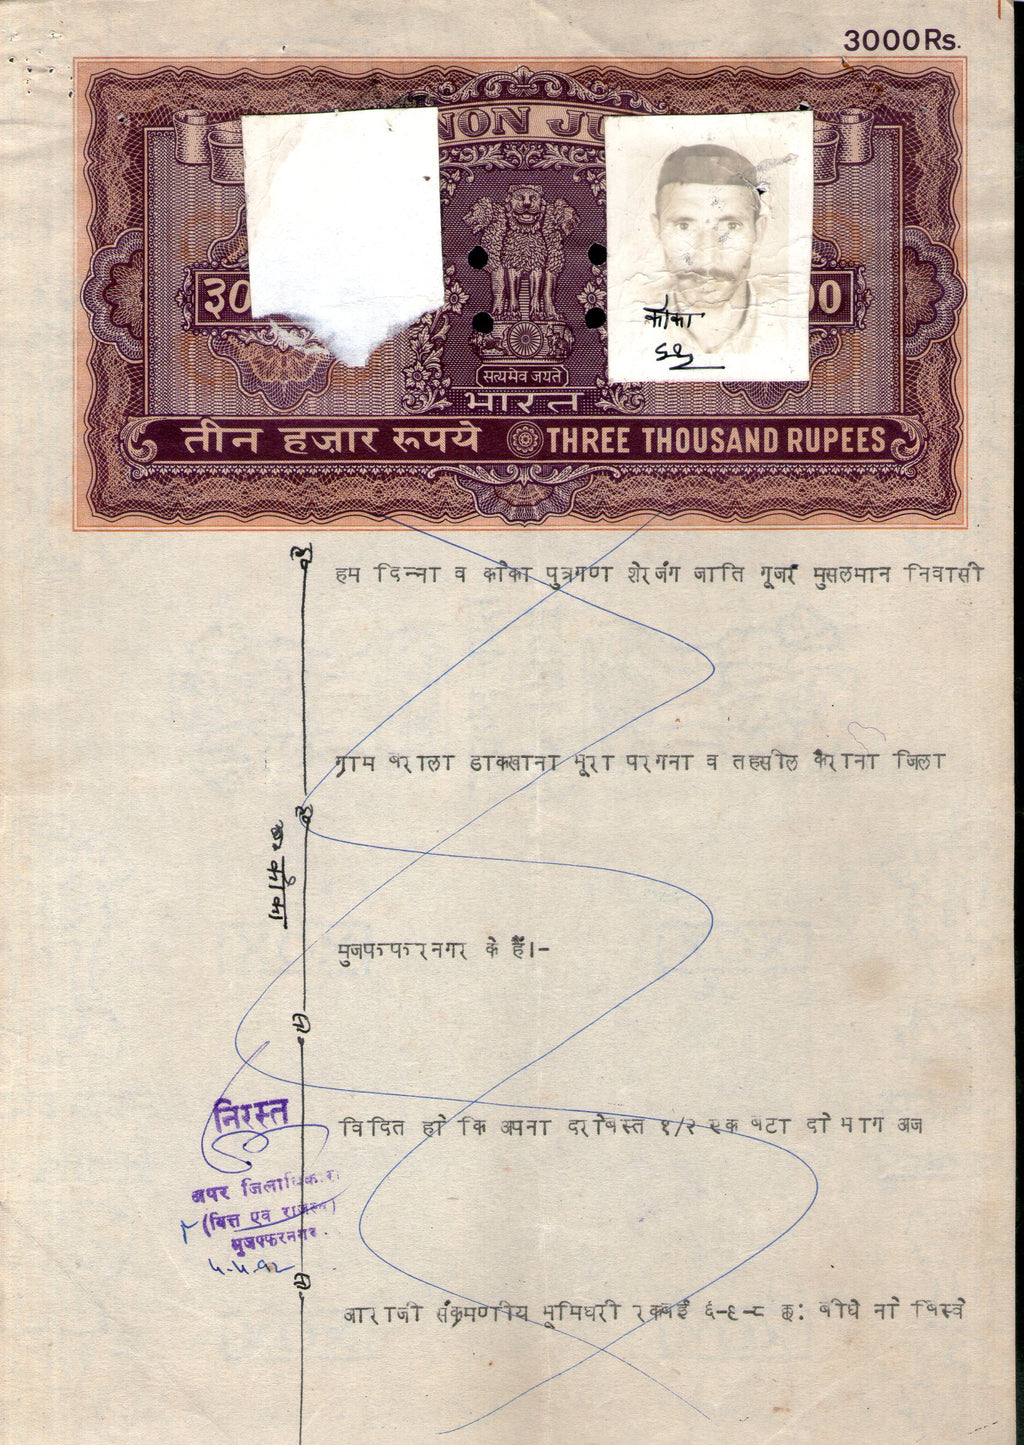 3000Rs.
NON JU
३०
00
सत्यमेव जयते
भारत
तीन हज़ार रूपये THREE THOUSAND RUPEES
काका
हम दिन्ना व काका पुत्रगण शेरजंग जाति गूजर मुसलमान निवासी
ग्राम बराला डाकखाना भूरा परगना व तहसील कैराना जिला
काका
मुजफफरनगर के हैं।-
निरस्त
विदित हो कि अपना दरोबस्त १/२ एक बटा दो भाग अज
अपर जिलाधिकारी
(वित्त एवं राजस्व)
मुजफ्फरनगर
आराजी संक्रमणीय भूमिधरी रकबई ६-९-८ छ: बीघे नो बिस्वे